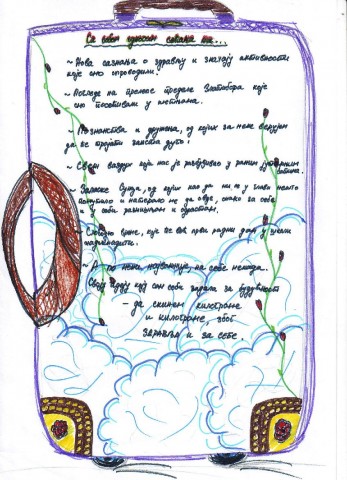 Са овог одлазим
~ Нова сазнања о здрављу и значају активности
које смо спроводили.
~ Погледе на прелепе пределе Златибора које
смо посетили у шетњама.
~ Познанства и дружења, од којих за нека верујем
да ће трајати заиста дуго!
~ Свеж ваздух који нас је разбуђивао у раним јутарњим
сатима.
~ Заласке Сунца, од којих као да ми се у глави нешто
и натерало ме да овде, онако за себе
и у себи размишљам и одрастам.
~ срце, које ће већ први радни дан у школи
надокнадити.
~ А по мени најважније, на себе некога.
Своју коју сам себи задала за будућност
- да скинем килограме
и килограме, због
ЗДРАВЉА и за СЕБЕ.